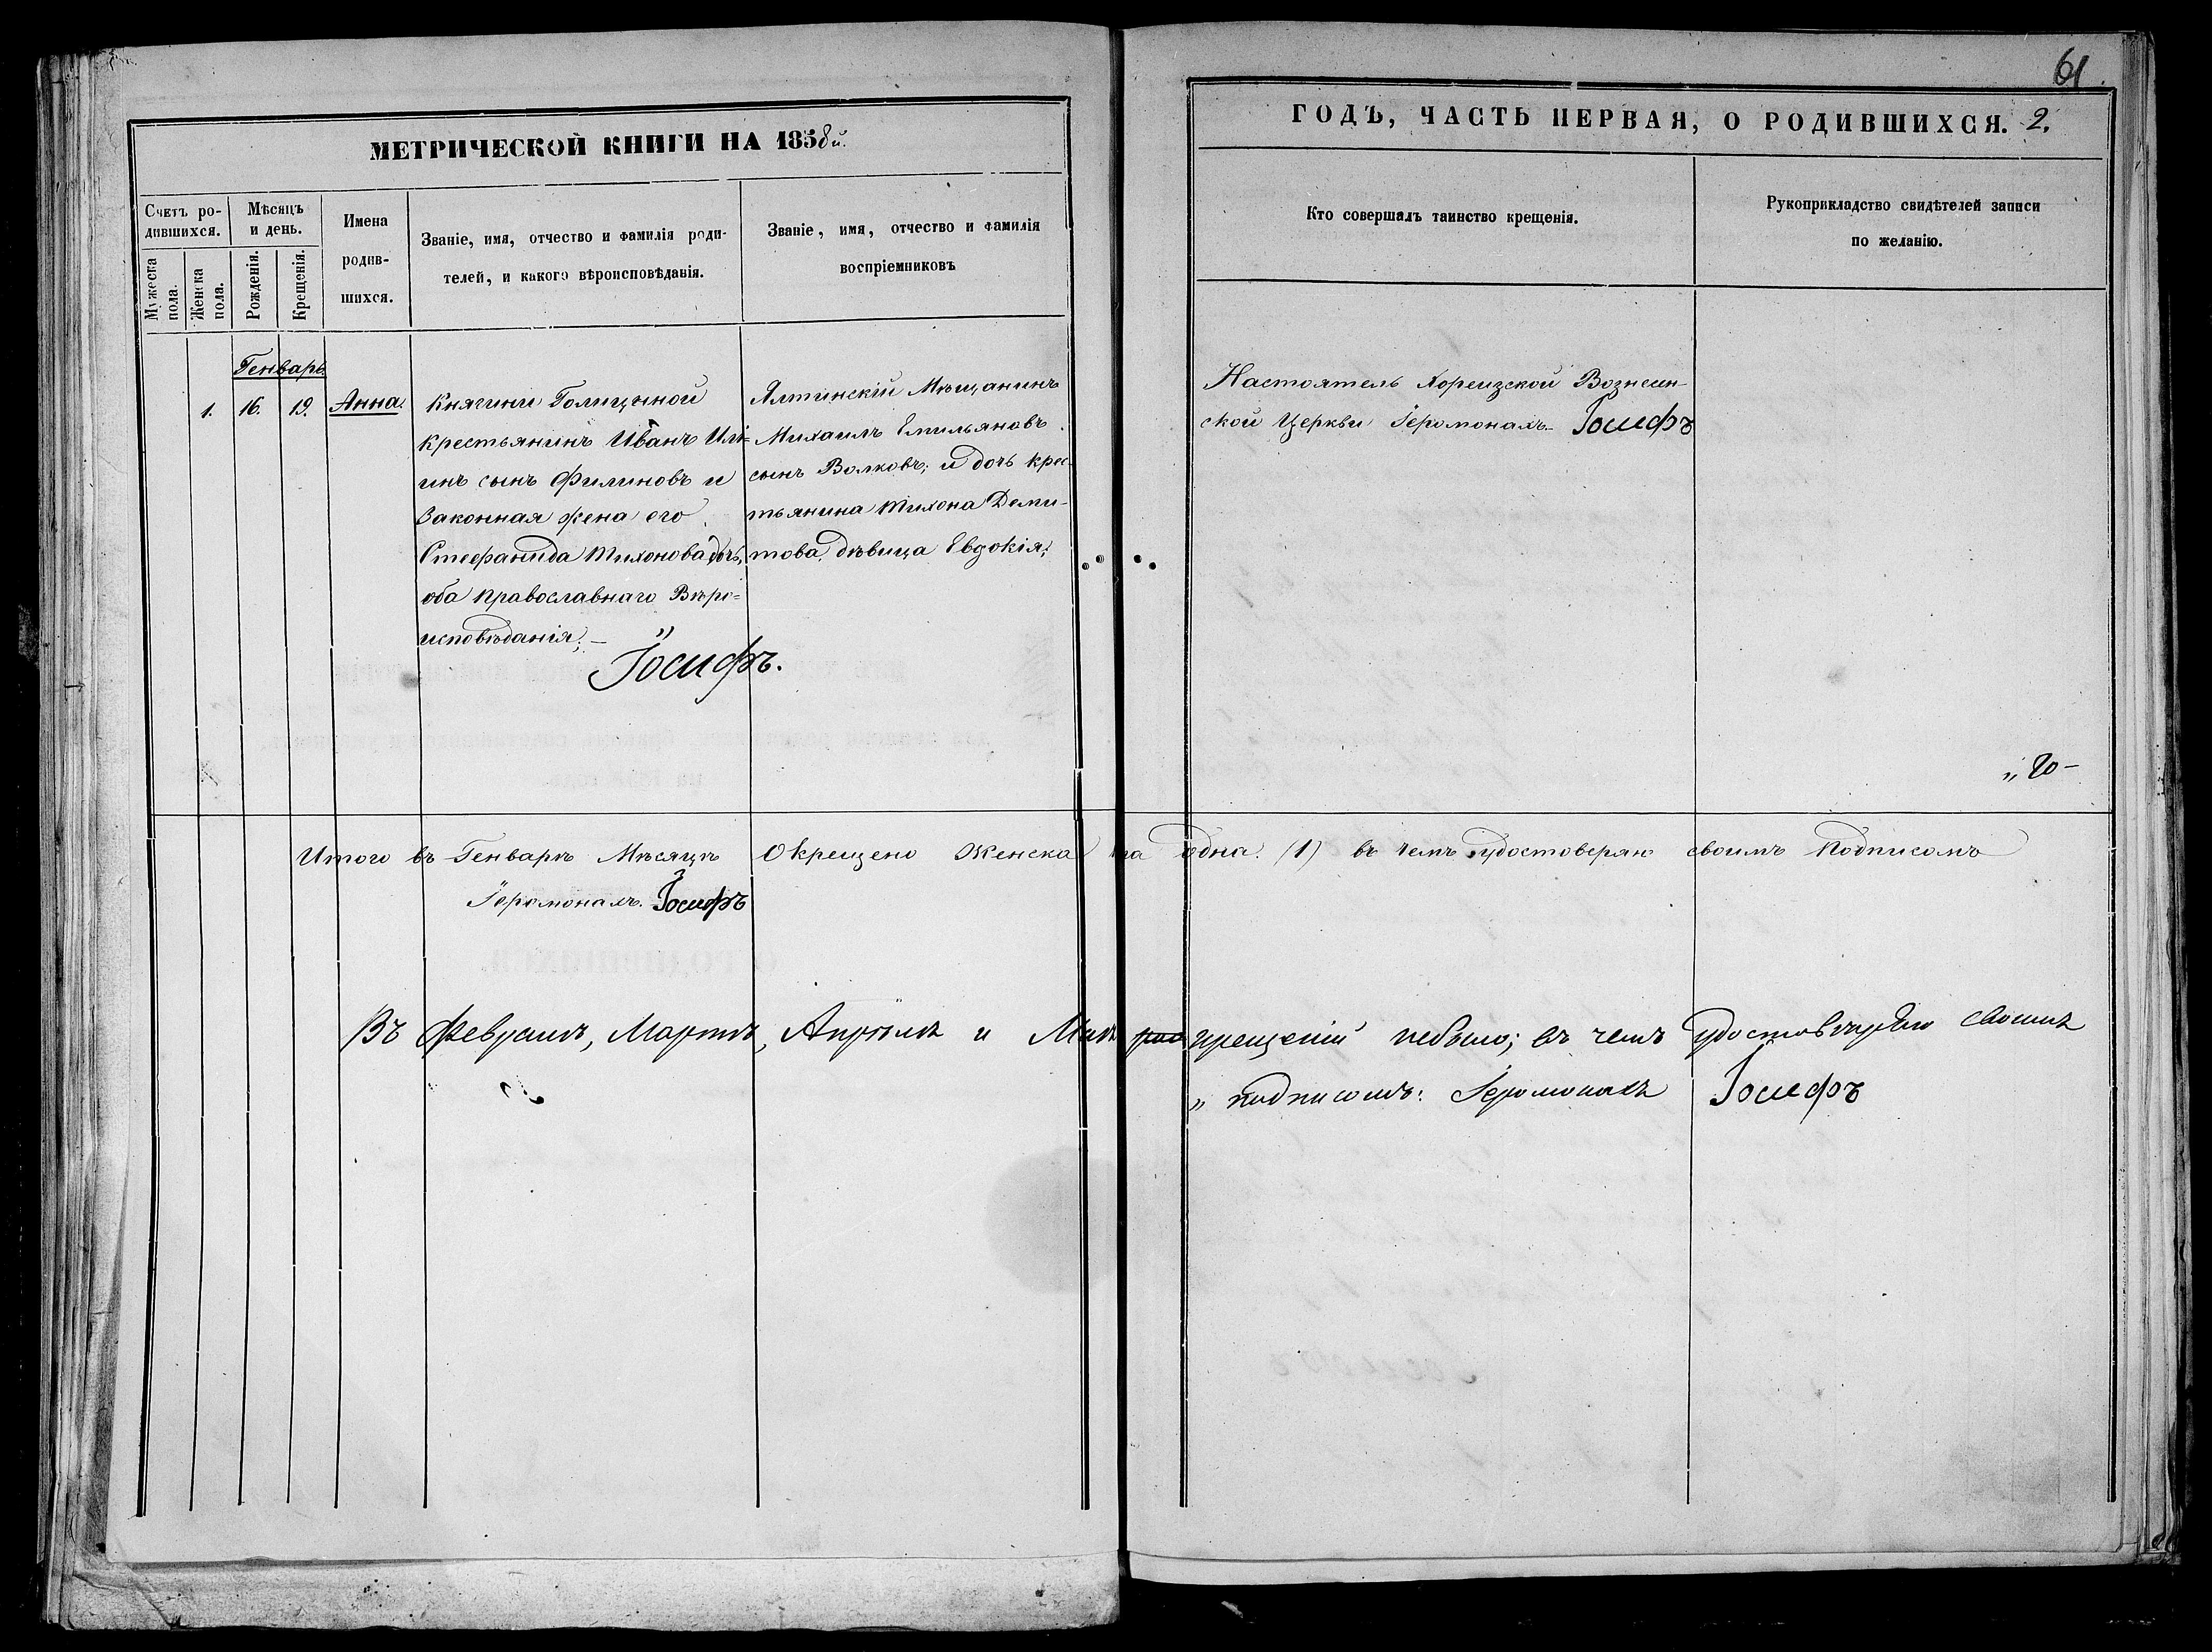 61
МЕТРИЧЕСКОЙ КНИГИ НА 1858й.
ГОДЪ, ЧАСТЬ ПЕРВАЯ, О РОДИВШИХСЯ. 2.
Счетъ ро-
дившихся.
Мужеска
пола.
Женска
пола.
Мѣсяцъ
и день.
Рожденія.
Крещенія.
Имена
родив-
шихся.
Званіе, имя, отчество и фамилія роди-
телей, и какого вѣроисповѣданія.
Званіе, имя, отчество и фамилія
воспріемниковъ
Кто совершалъ таинство крещенія.
Рукоприкладство свидѣтелей записи
по желанію.
Генварь
1. 16. 19. Анна.
Княгини Голицыной
крестьянинъ Иванъ Илі-
инъ сынъ Филиновъ и
Законная жена его
Стефанида Тихонова дочь,
оба православнаго Вѣро-
исповѣданія;
Іосифъ.
Ялтинскій Мѣщанинъ
Михаилъ Емильяновъ
сынъ Волковъ; и дочь крес-
тьянина Тихона Деми-
това, дѣвица Евдокія;
Настоятель Кореизской Вознесен-
ской Церкви Іеромонахъ Іосифъ
Итого въ Генварѣ Мѣсяцѣ Окрещено Женска па одна. (1) въ чемъ удостоверяю своимъ Подписомъ
Іеромонахъ. Іосифъ
Въ Февралѣ, Мартѣ, Апрѣлѣ и Маѣ крещеній небыло; въ чемъ удостовѣряю своимъ
„ подписомъ: Іеромонахъ Іосифъ